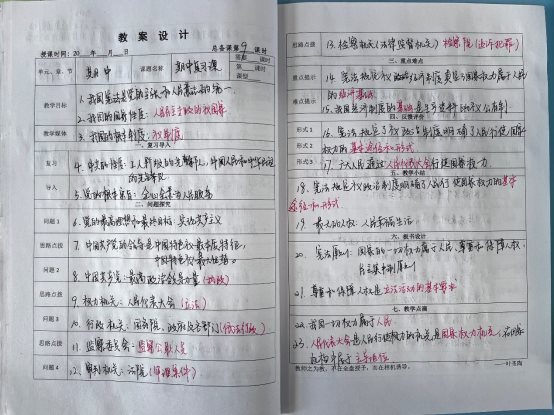 教案设计
授课时间：20 年 月 日 总备课第9课时
单元、章、节 期中 课题名称 期中复习课 第 课时
课型
教学目标 1. 我国宪法是党的主张和人民意志的统一。
2. 我国的国家性质：人民民主专政的社会主义国家
教学媒体 3. 我国的根本制度：
一、复习导入
复习 4. 中共的性质：工人阶级的先锋队，中国人民和中华民族
的先锋队
导入 5. 党的根本宗旨：全心全意为人民服务
二、问题探究
问题1 6. 党的最高理想和最终目标：实现共产主义
思路点拨 7. 中国共产党的领导是中国特色最本质特征，
中国特色最大优势。
问题2 8. 中国共产党：最高政治领导力量
思路点拨 9. 权力机关：人民代表大会（立法）
问题3 10. 行政机关：国务院、政府及各部门（依法行政）
思路点拨 11. 监察委员会：监督公职人员
问题4 12. 审判机关：法院（审理案件）
思路点拨 13. 检察机关（法律监督机关）检察院（
三、重点难点
重点提示 14. 宪法规定 经济制度 国家一切权力属于人民
的经济基础
难点提示 15. 我国经济制度的基础是生产资料的公有制
四、反馈评价
形式1 16. 宪法规定了政治制度明确了人民行使国家
形式2 权力的基本途径和形式
形式3 17. 广大人民通过人民代表大会行使国家权力。
五、教学小结
18. 宪法规定政治制度明确了人民行使国家权力的基本
途径和形式
19. 最大的人权：人民幸福生活。
六、板书设计
20. 宪法原则：国家的一切权力属于人民、尊重和保障人权、
民主集中制原则
21. 尊重和保障人权是立法活动的基本要求
七、教学点滴
22. 我国一切权力属于人民
23. 人民代表大会是人民行使权力的机关，是国家权力机关，在国家
机构中居于主导地位
教师之为教，不在全盘授予，而在相机诱导。 ——叶圣陶